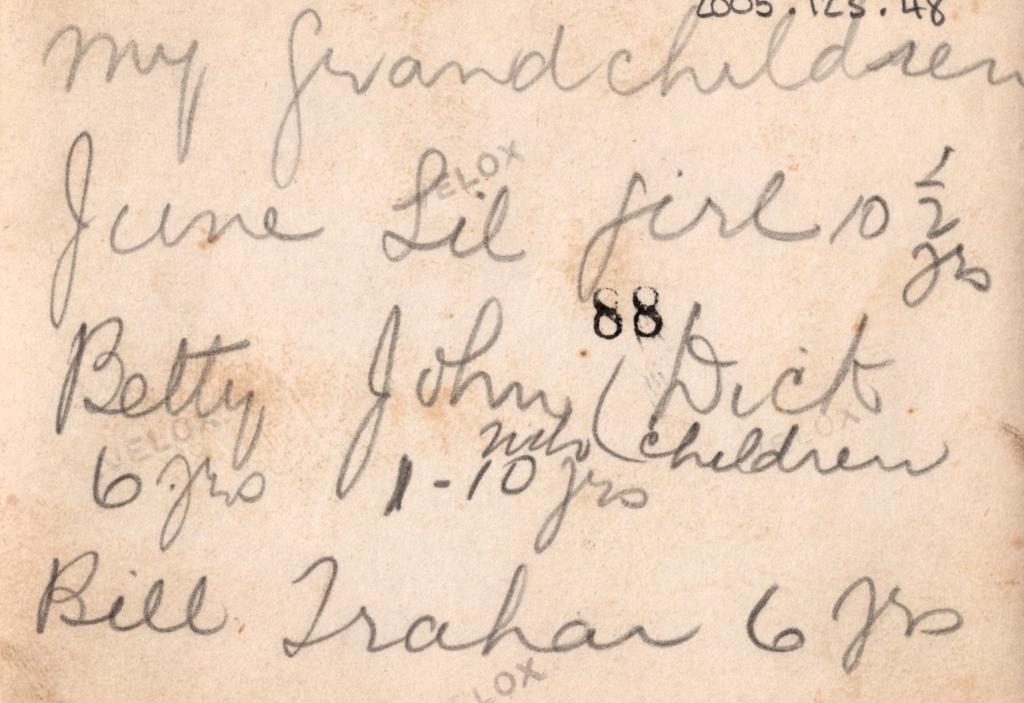 2005.123.48
My Grandchildren
June Lil girl 10 1/2
yrs
88
Betty John (Dick
children
6 yrs 1-10 yrs
Bill Trahan 6 yrs
VELOX
VELOX
VELOX
VELOX